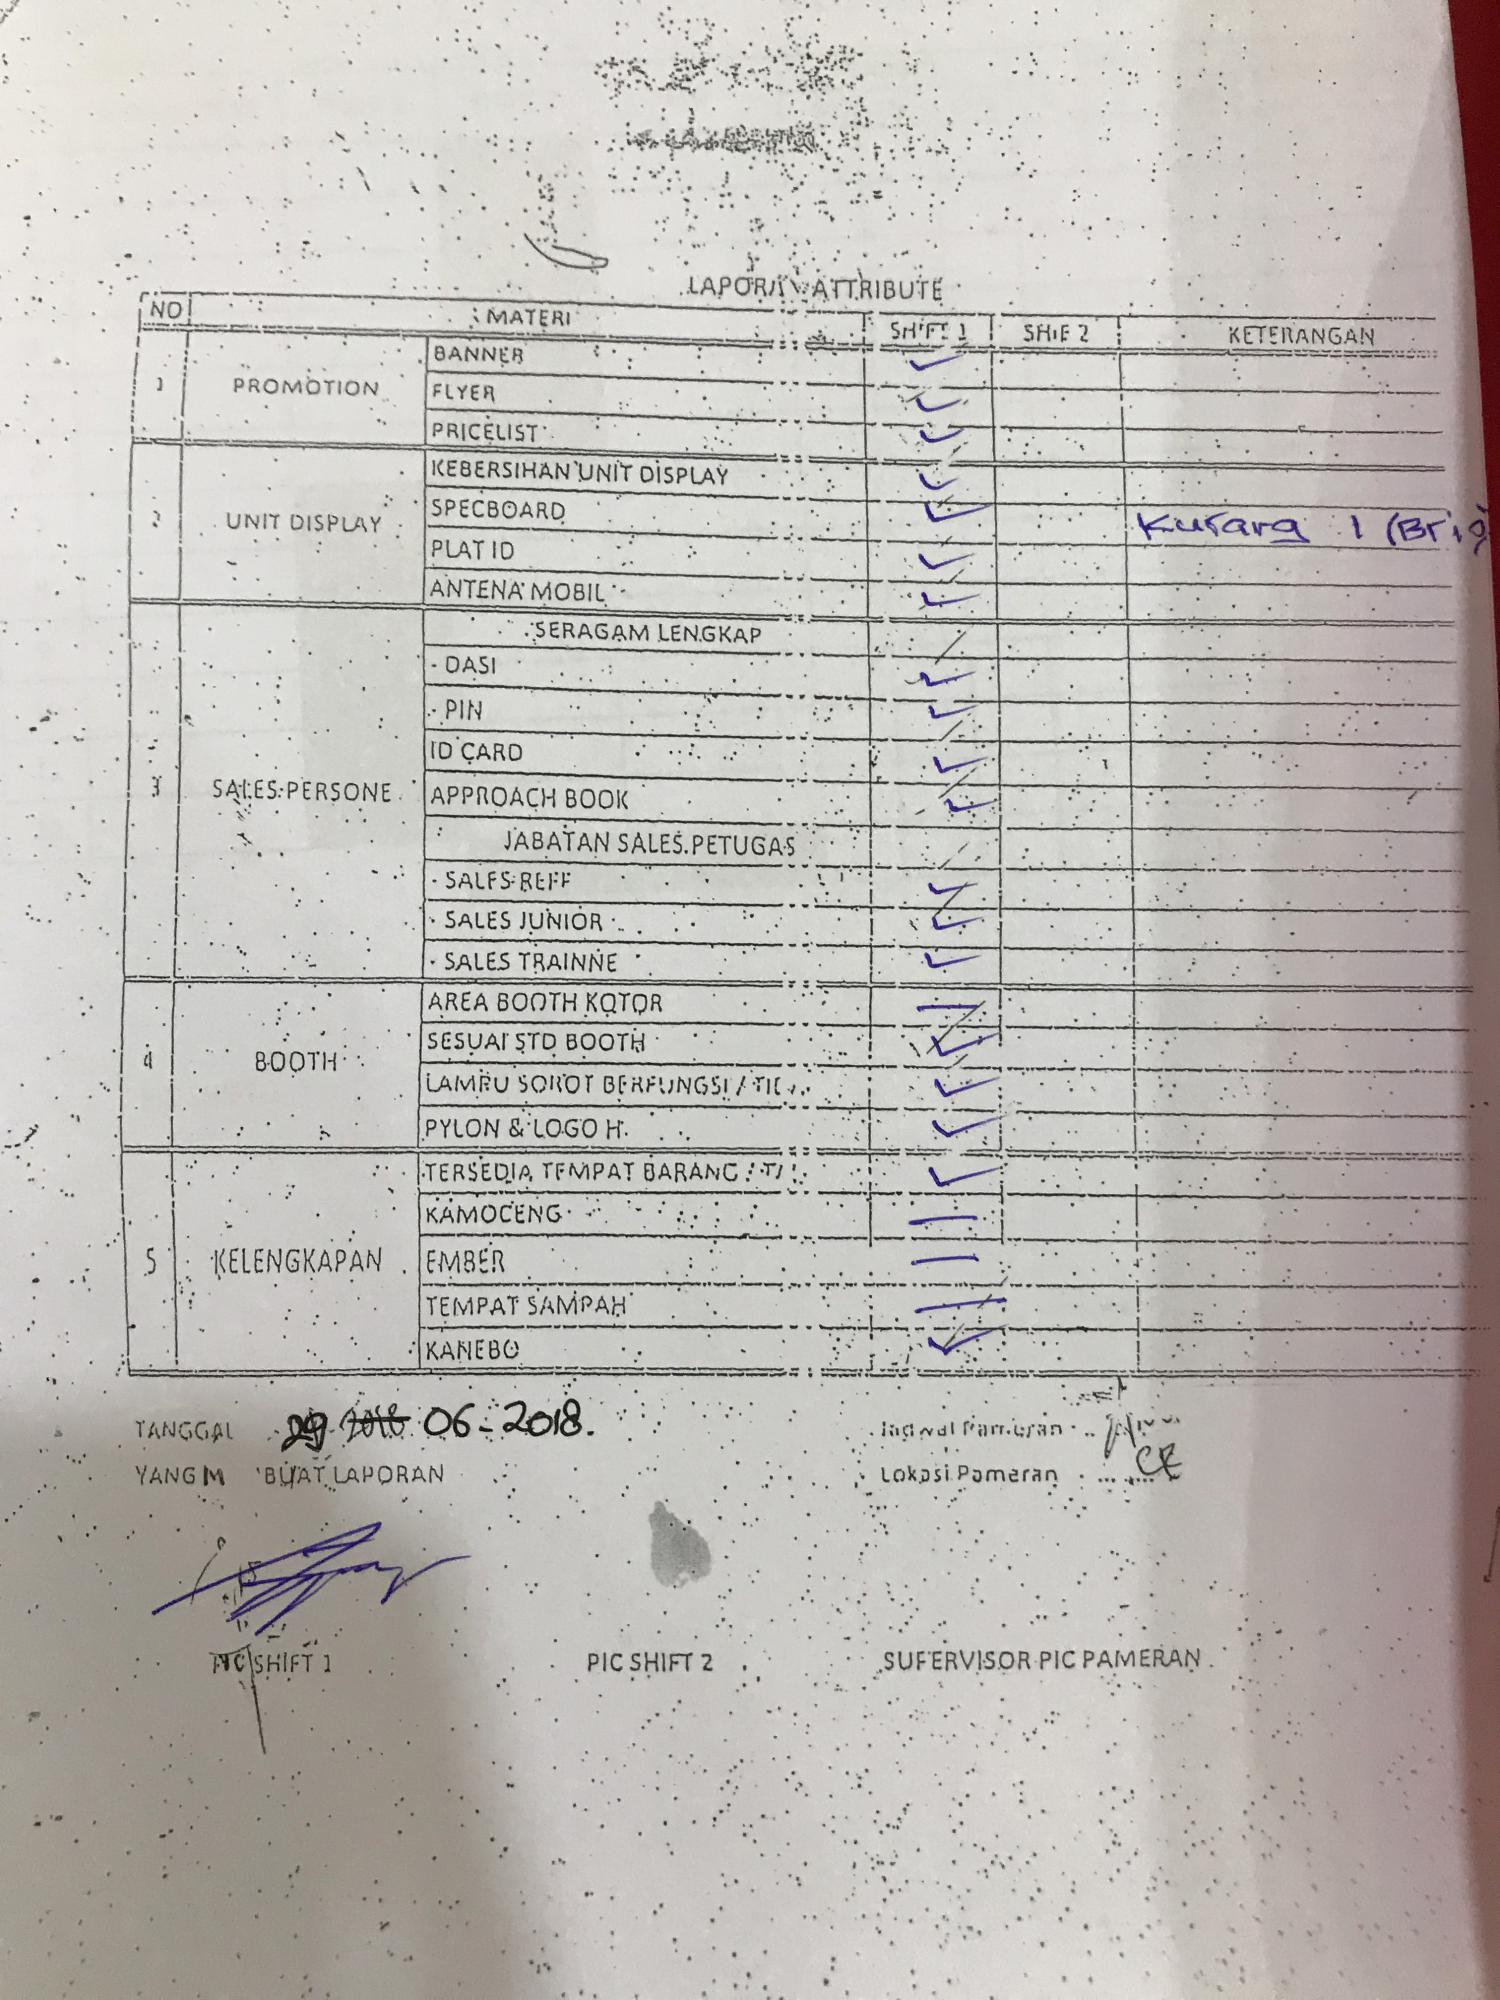 ATTRIBUTE
NO MATERI SHIFT 1 SHIF 2 KETERANGAN
1 PROMOTION BANNER ✓
FLYER ✓
PRICELIST ✓
2 UNIT DISPLAY KEBERSIHAN UNIT DISPLAY ✓
SPECBOARD ✓ Kurang 1
PLAT ID ✓
ANTENA MOBIL ✓
3 SALES PERSONE SERAGAM LENGKAP
- DASI ✓
- PIN ✓
ID CARD ✓
APPROACH BOOK ✓
JABATAN SALES PETUGAS
- SALES REFF ✓
- SALES JUNIOR ✓
- SALES TRAINNE ✓
4 BOOTH AREA BOOTH KOTOR —
SESUAI STD BOOTH ✓
LAMPU SOROT BERFUNGSI / ✓
PYLON & LOGO H ✓
5 KELENGKAPAN TERSEDIA TEMPAT BARANG / ✓
KAMOCENG —
EMBER —
TEMPAT SAMPAH —
KANEBO ✓
TANGGAL 29 06-2018. Jadwal Pameran
YANG BUAT LAPORAN Lokasi Pameran
PIC SHIFT 1 PIC SHIFT 2 SUPERVISOR PIC PAMERAN